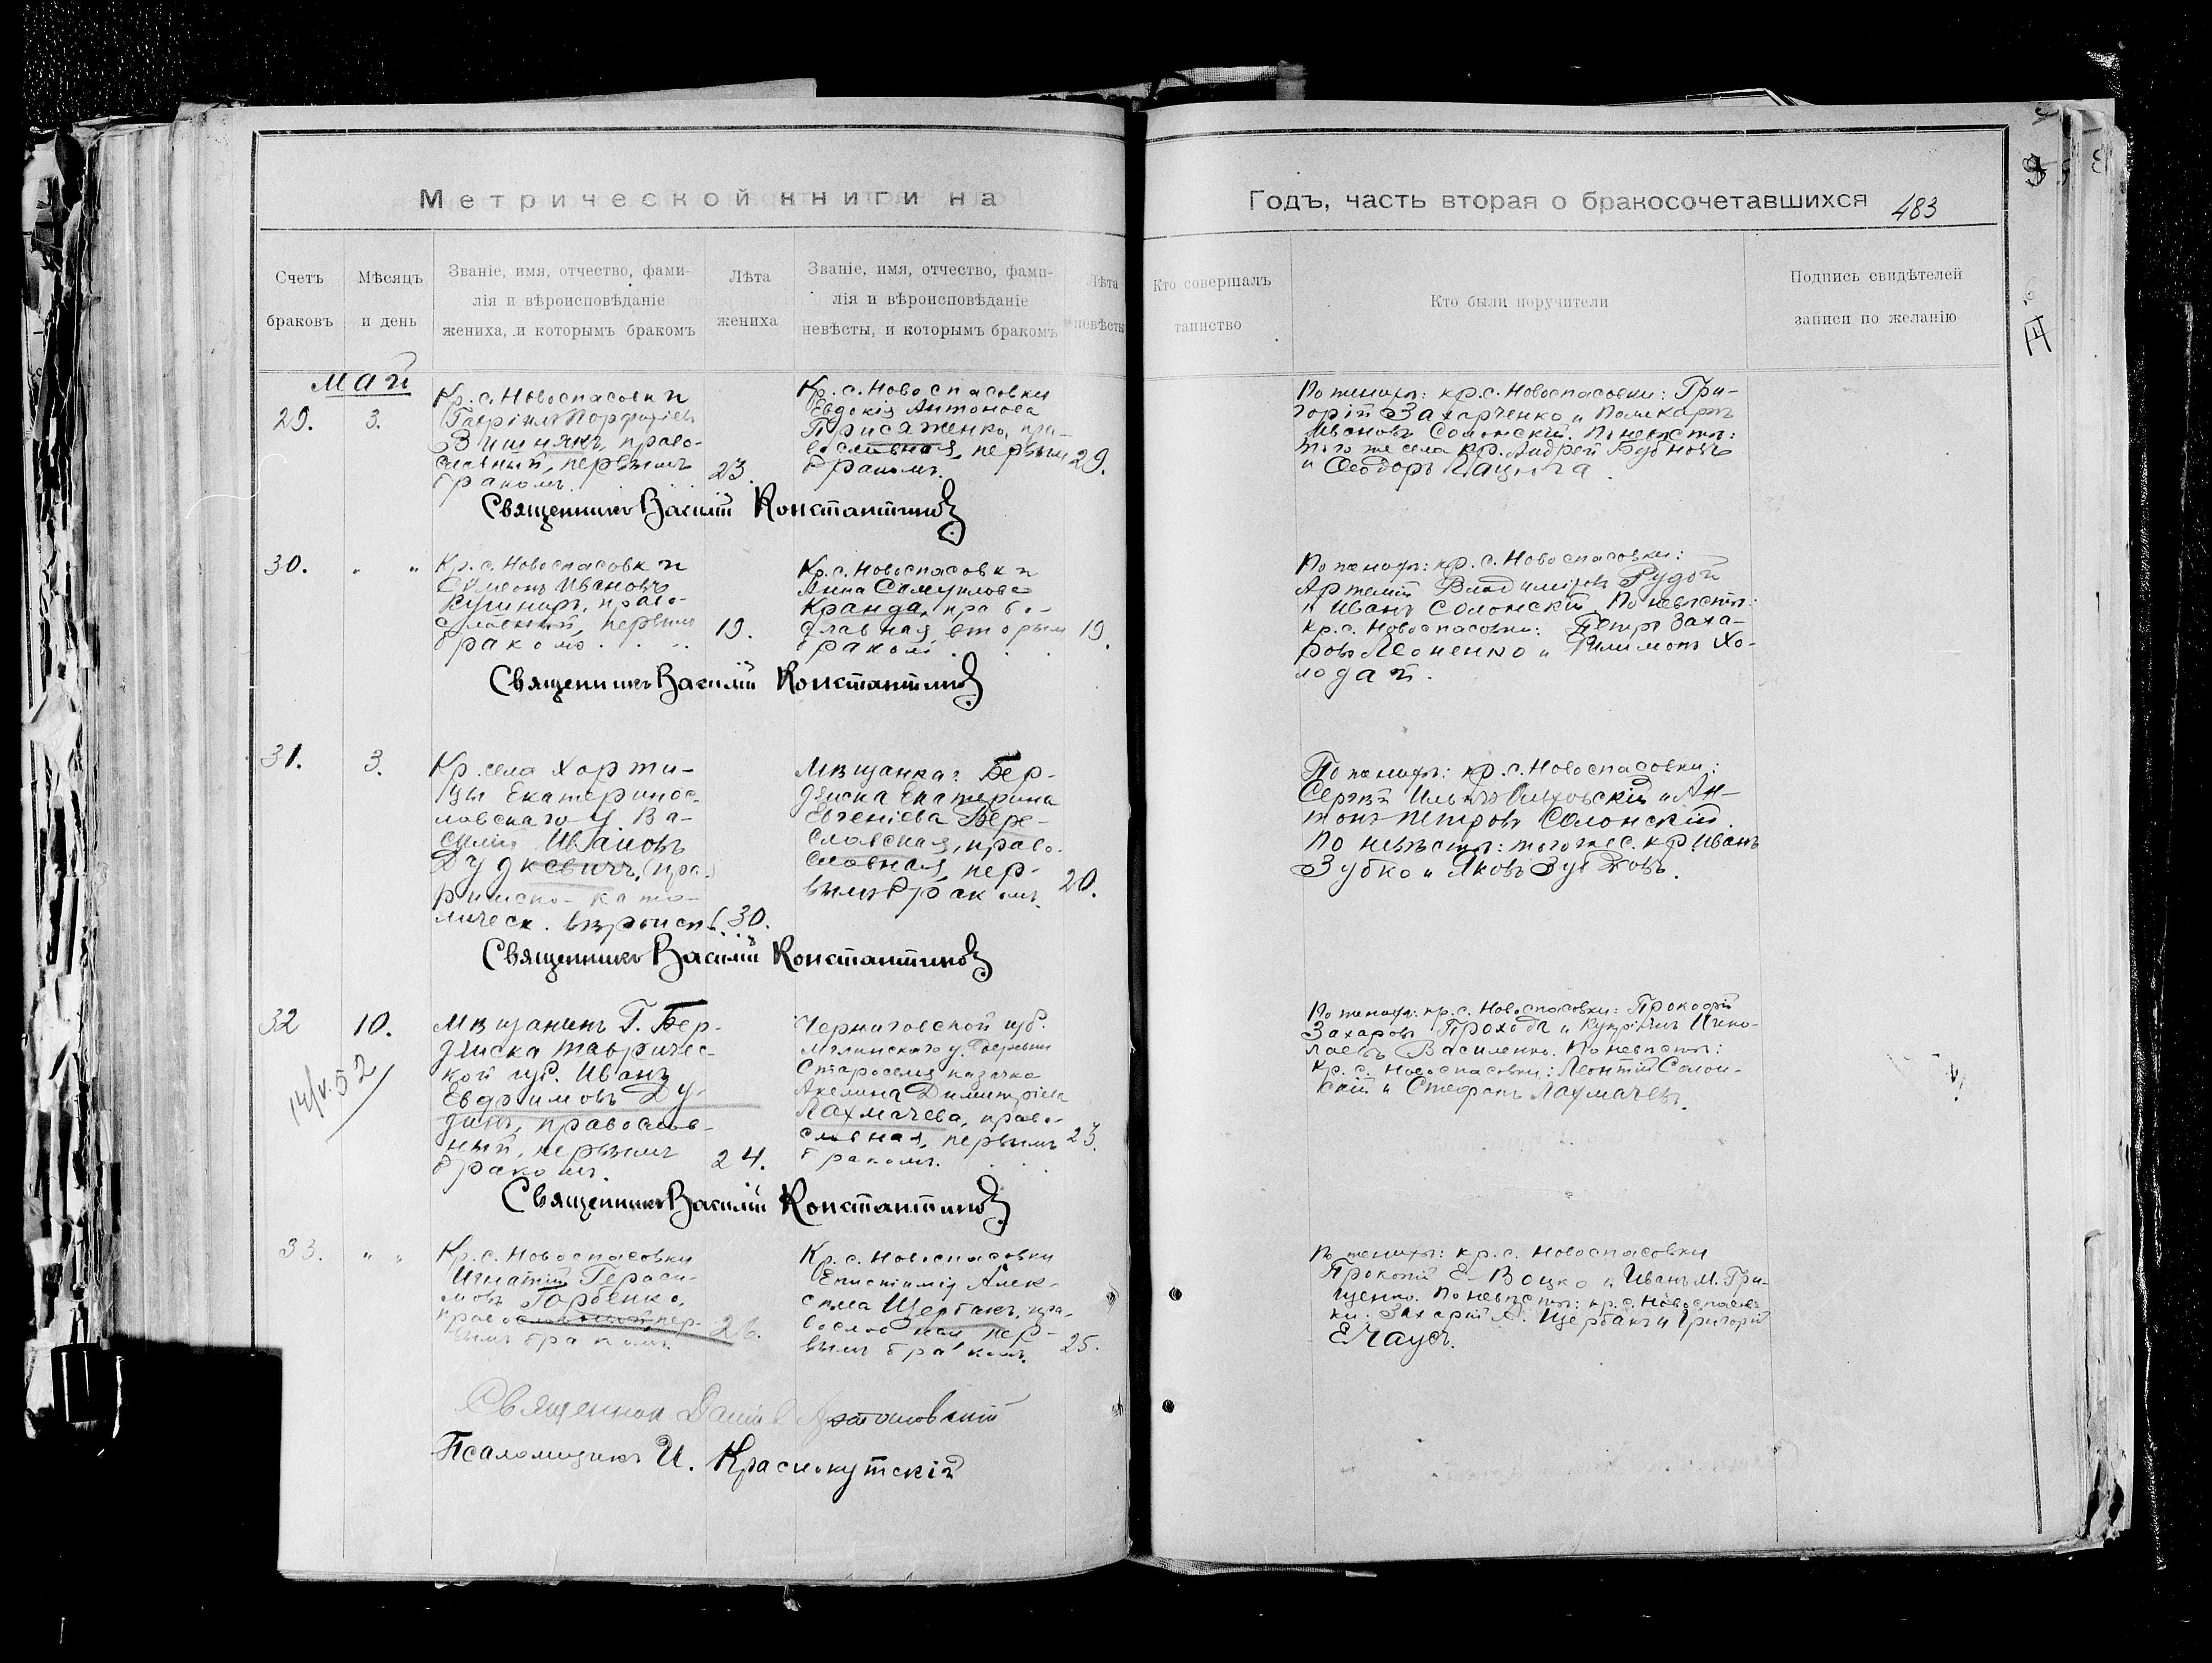 Метрической книги на
Годъ, часть вторая о бракосочетавшихся 483
Счетъ
браковъ
Мѣсяцъ
и день
Званіе, имя, отчество, фами-
лія и вѣроисповѣданіе
жениха, и которымъ бракомъ
Лѣта
жениха
Званіе, имя, отчество, фами-
лія и вѣроисповѣданіе
невѣсты, и которымъ бракомъ
Лѣта
невѣсты
Кто совершалъ
таинство
Кто были поручители
Подпись свидѣтелей
записи по желанію
май
29. 3.
Кр. с. Новоспасовки
Гавріилъ Порфиріевъ
Вишнякъ, право-
славный, первымъ
бракомъ. 23.
Кр. с. Новоспасовки
Евдокія Антонова
Присяженко, пра-
вославная, первым
бракомъ. 29.
По женихѣ: кр. с. Новоспасовки: Гри-
горій Захарченко и Поликарпъ
Ивановъ Солонскій. По невѣстѣ:
того же села кр. Андрей Бубновъ
и Ѳеодоръ
Священникъ Василій Константиновъ
30. " "
Кр. с. Новоспасовки
Симеонъ Ивановъ
Кушниръ, право-
славный, первым
бракомъ. 19.
Кр. с. Новоспасовки
Анна Самуилова
Кранда, право-
славная, вторым
бракомъ. 19.
По женихѣ: кр. с. Новоспасовки:
Артемій Владиміровъ Рудой
и Иванъ Солонскій. По невѣстѣ:
кр. с. Новоспасовки: Петръ Заха-
ровъ Леоненко и Филимонъ Хо-
лодай.
Священникъ Василій Константиновъ
31. 3.
Кр. села Хорти-
цы Екатеринос-
лавскаго у. Ва-
силій Ивановъ
Дудкевичъ, (пра.)
римско-като-
лическ. вѣроисп. 30.
Мѣщанка г. Бер-
дянска Екатерина
Евгеніева Бере-
славская, право-
славная, пер-
вымъ бракомъ. 20.
По женихѣ: кр. с. Новоспасовки:
Сергѣй Ильичъ и Ан-
тонъ Петровъ Солонскій.
По невѣстѣ: того же с. кр Иванъ
Зубко и Яковъ Зубковъ.
Священникъ Василій Константиновъ
32 10.
14/V.52
Мѣщанинъ г. Бер-
дянска Тавричес-
кой губ. Иванъ
Евфимовъ Ду-
динъ, православ-
ный, первымъ
бракомъ. 24.
Черниговской губ.
Мглинскаго у. деревни
Староселья казачка
Акелина Димитріева
Лахмачева, право-
славная, первымъ
бракомъ. 23.
По женихѣ: кр. с. Новоспасовки: Прокофій
Захаровъ Проходъ и Купріянъ Нико-
лаевъ Василенко. По невѣстѣ:
кр. с. Новоспасовки: Леонтій Солон-
скій и Стефанъ Лахмачевъ.
Священникъ Василій Константиновъ
33. " "
Кр. с. Новоспасовки
Игнатій Гераси-
мовъ Горбенко,
православный, пер-
вымъ бракомъ. 26.
Кр. с. Новоспасовки
Епистимія Алек-
сѣева Щербакъ, пра-
вославная пер-
вымъ бракомъ. 25.
По женихѣ: кр. с. Новоспасовки
Прокопій Е. Воцко и Иванъ М. Гри-
щенко. По невѣстѣ: кр. с. Новоспасов-
ки: Захарій А. Щербакъ и Григорій
Е. Чаусъ.
Священник
Псаломщикъ И. Краснокутскій